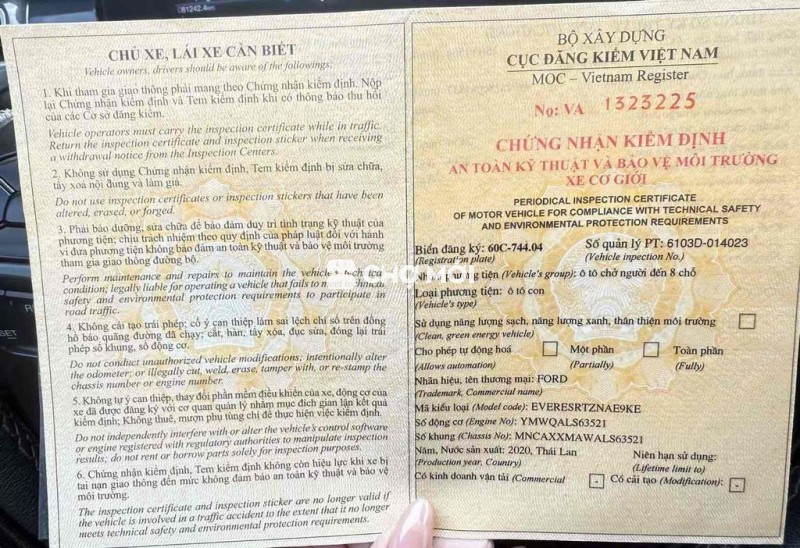 61242.4
CHỦ XE, LÁI XE CẦN BIẾT
Vehicle owners, drivers should be aware of the followings:
1. Khi tham gia giao thông phải mang theo Chứng nhận kiểm định. Nộp
lại Chứng nhận kiểm định và Tem kiểm định khi có thông báo thu hồi
của các Cơ sở đăng kiểm.
Vehicle operators must carry the inspection certificate while in traffic.
Return the inspection certificate and inspection sticker when receiving
a withdrawal notice from the Inspection Centers.
2. Không sử dụng Chứng nhận kiểm định, Tem kiểm định bị sửa chữa,
tẩy xoá nội dung và làm giả.
Do not use inspection certificates or inspection stickers that have been
altered, erased, or forged.
3. Phải bảo dưỡng, sửa chữa để bảo đảm duy trì tình trạng kỹ thuật của
phương tiện; chịu trách nhiệm theo quy định của pháp luật đối với hành
vi đưa phương tiện không bảo đảm an toàn kỹ thuật và bảo vệ môi trường
tham gia giao thông đường bộ.
Perform maintenance and repairs to maintain the vehicle's technical
condition; legally liable for operating a vehicle that fails to meet technical
safety and environmental protection requirements to participate in
road traffic.
4. Không cải tạo trái phép; cố ý can thiệp làm sai lệch chỉ số trên đồng
hồ báo quãng đường đã chạy; cắt, hàn, tẩy xóa, đục sửa, đóng lại trái
phép số khung, số động cơ.
Do not conduct unauthorized vehicle modifications; intentionally alter
the odometer; or illegally cut, weld, erase, tamper with, or re-stamp the
chassis number or engine number.
5. Không tự ý can thiệp, thay đổi phần mềm điều khiển của xe, động cơ của
xe đã được đăng ký với cơ quan quản lý nhằm mục đích gian lận kết quả
kiểm định; Không thuê, mượn phụ tùng chỉ để thực hiện việc kiểm định.
Do not independently interfere with or alter the vehicle's control software
or engine registered with regulatory authorities to manipulate inspection
results; do not rent or borrow parts solely for inspection purposes.
6. Chứng nhận kiểm định, Tem kiểm định không còn hiệu lực khi xe bị
tai nạn giao thông đến mức không đảm bảo an toàn kỹ thuật và bảo vệ
môi trường.
The inspection certificate and inspection sticker are no longer valid if
the vehicle is involved in a traffic accident to the extent that it no longer
meets technical safety and environmental protection requirements.
BỘ XÂY DỰNG
CỤC ĐĂNG KIỂM VIỆT NAM
MOC – Vietnam Register
No: VA 1323225
CHỨNG NHẬN KIỂM ĐỊNH
AN TOÀN KỸ THUẬT VÀ BẢO VỆ MÔI TRƯỜNG
XE CƠ GIỚI
PERIODICAL INSPECTION CERTIFICATE
OF MOTOR VEHICLE FOR COMPLIANCE WITH TECHNICAL SAFETY
AND ENVIRONMENTAL PROTECTION REQUIREMENTS
Biển đăng ký: 60C-744.04 Số quản lý PT: 6103D-014023
(Registration plate) (Vehicle inspection No.)
Nhóm phương tiện (Vehicle's group): ô tô chở người đến 8 chỗ
Loại phương tiện: ô tô con
(Vehicle's type)
Sử dụng năng lượng sạch, năng lượng xanh, thân thiện môi trường
(Clean, green energy vehicle)
Cho phép tự động hoá Một phần Toàn phần
(Allows automation) (Partially) (Fully)
Nhãn hiệu, tên thương mại: FORD
(Trademark, Commercial name)
Mã kiểu loại (Model code): EVERESRTZNAE9KE
Số động cơ (Engine No): YMWQALS63521
Số khung (Chassis No): MNCAXXMAWALS63521
Năm, Nước sản xuất: 2020, Thái Lan Niên hạn sử dụng:
(Production year, Country) (Lifetime limit to)
Có kinh doanh vận tải (Commercial - Có cải tạo (Modification): -